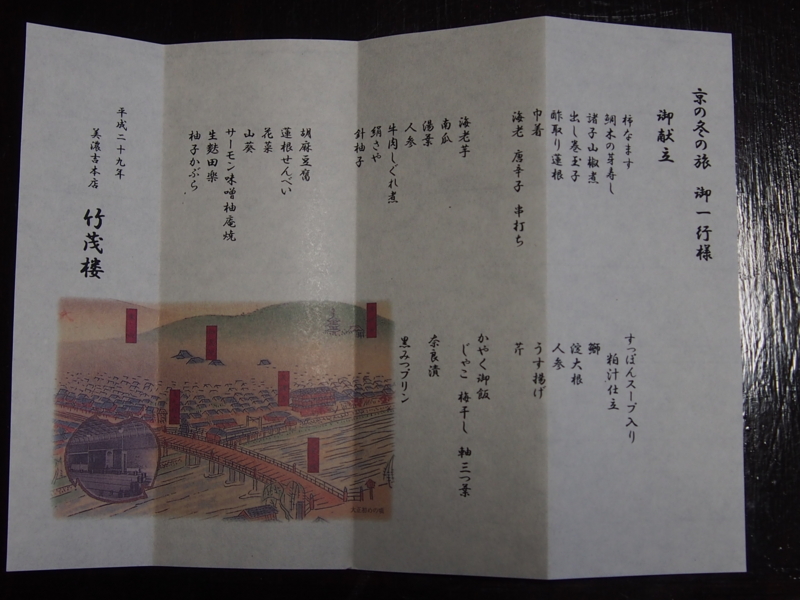 京の冬の旅 御一行様
御献立
柿なます
鯛木の芽寿し
諸子山椒煮
出し巻玉子
酢取り蓮根
巾着
海老 唐辛子 串打ち
海老芋
南瓜
湯葉
人参
牛肉しぐれ煮
絹さや
針柚子
胡麻豆腐
蓮根せんべい
花菜
山葵
サーモン味噌柚庵焼
生麩田楽
柚子かぶら
すっぽんスープ入り
粕汁仕立
鰤
淀大根
人参
うす揚げ
芹
かやく御飯
じゃこ 梅干し 軸三つ葉
奈良漬
黒みつプリン
平成二十九年
美濃吉本店
竹茂楼